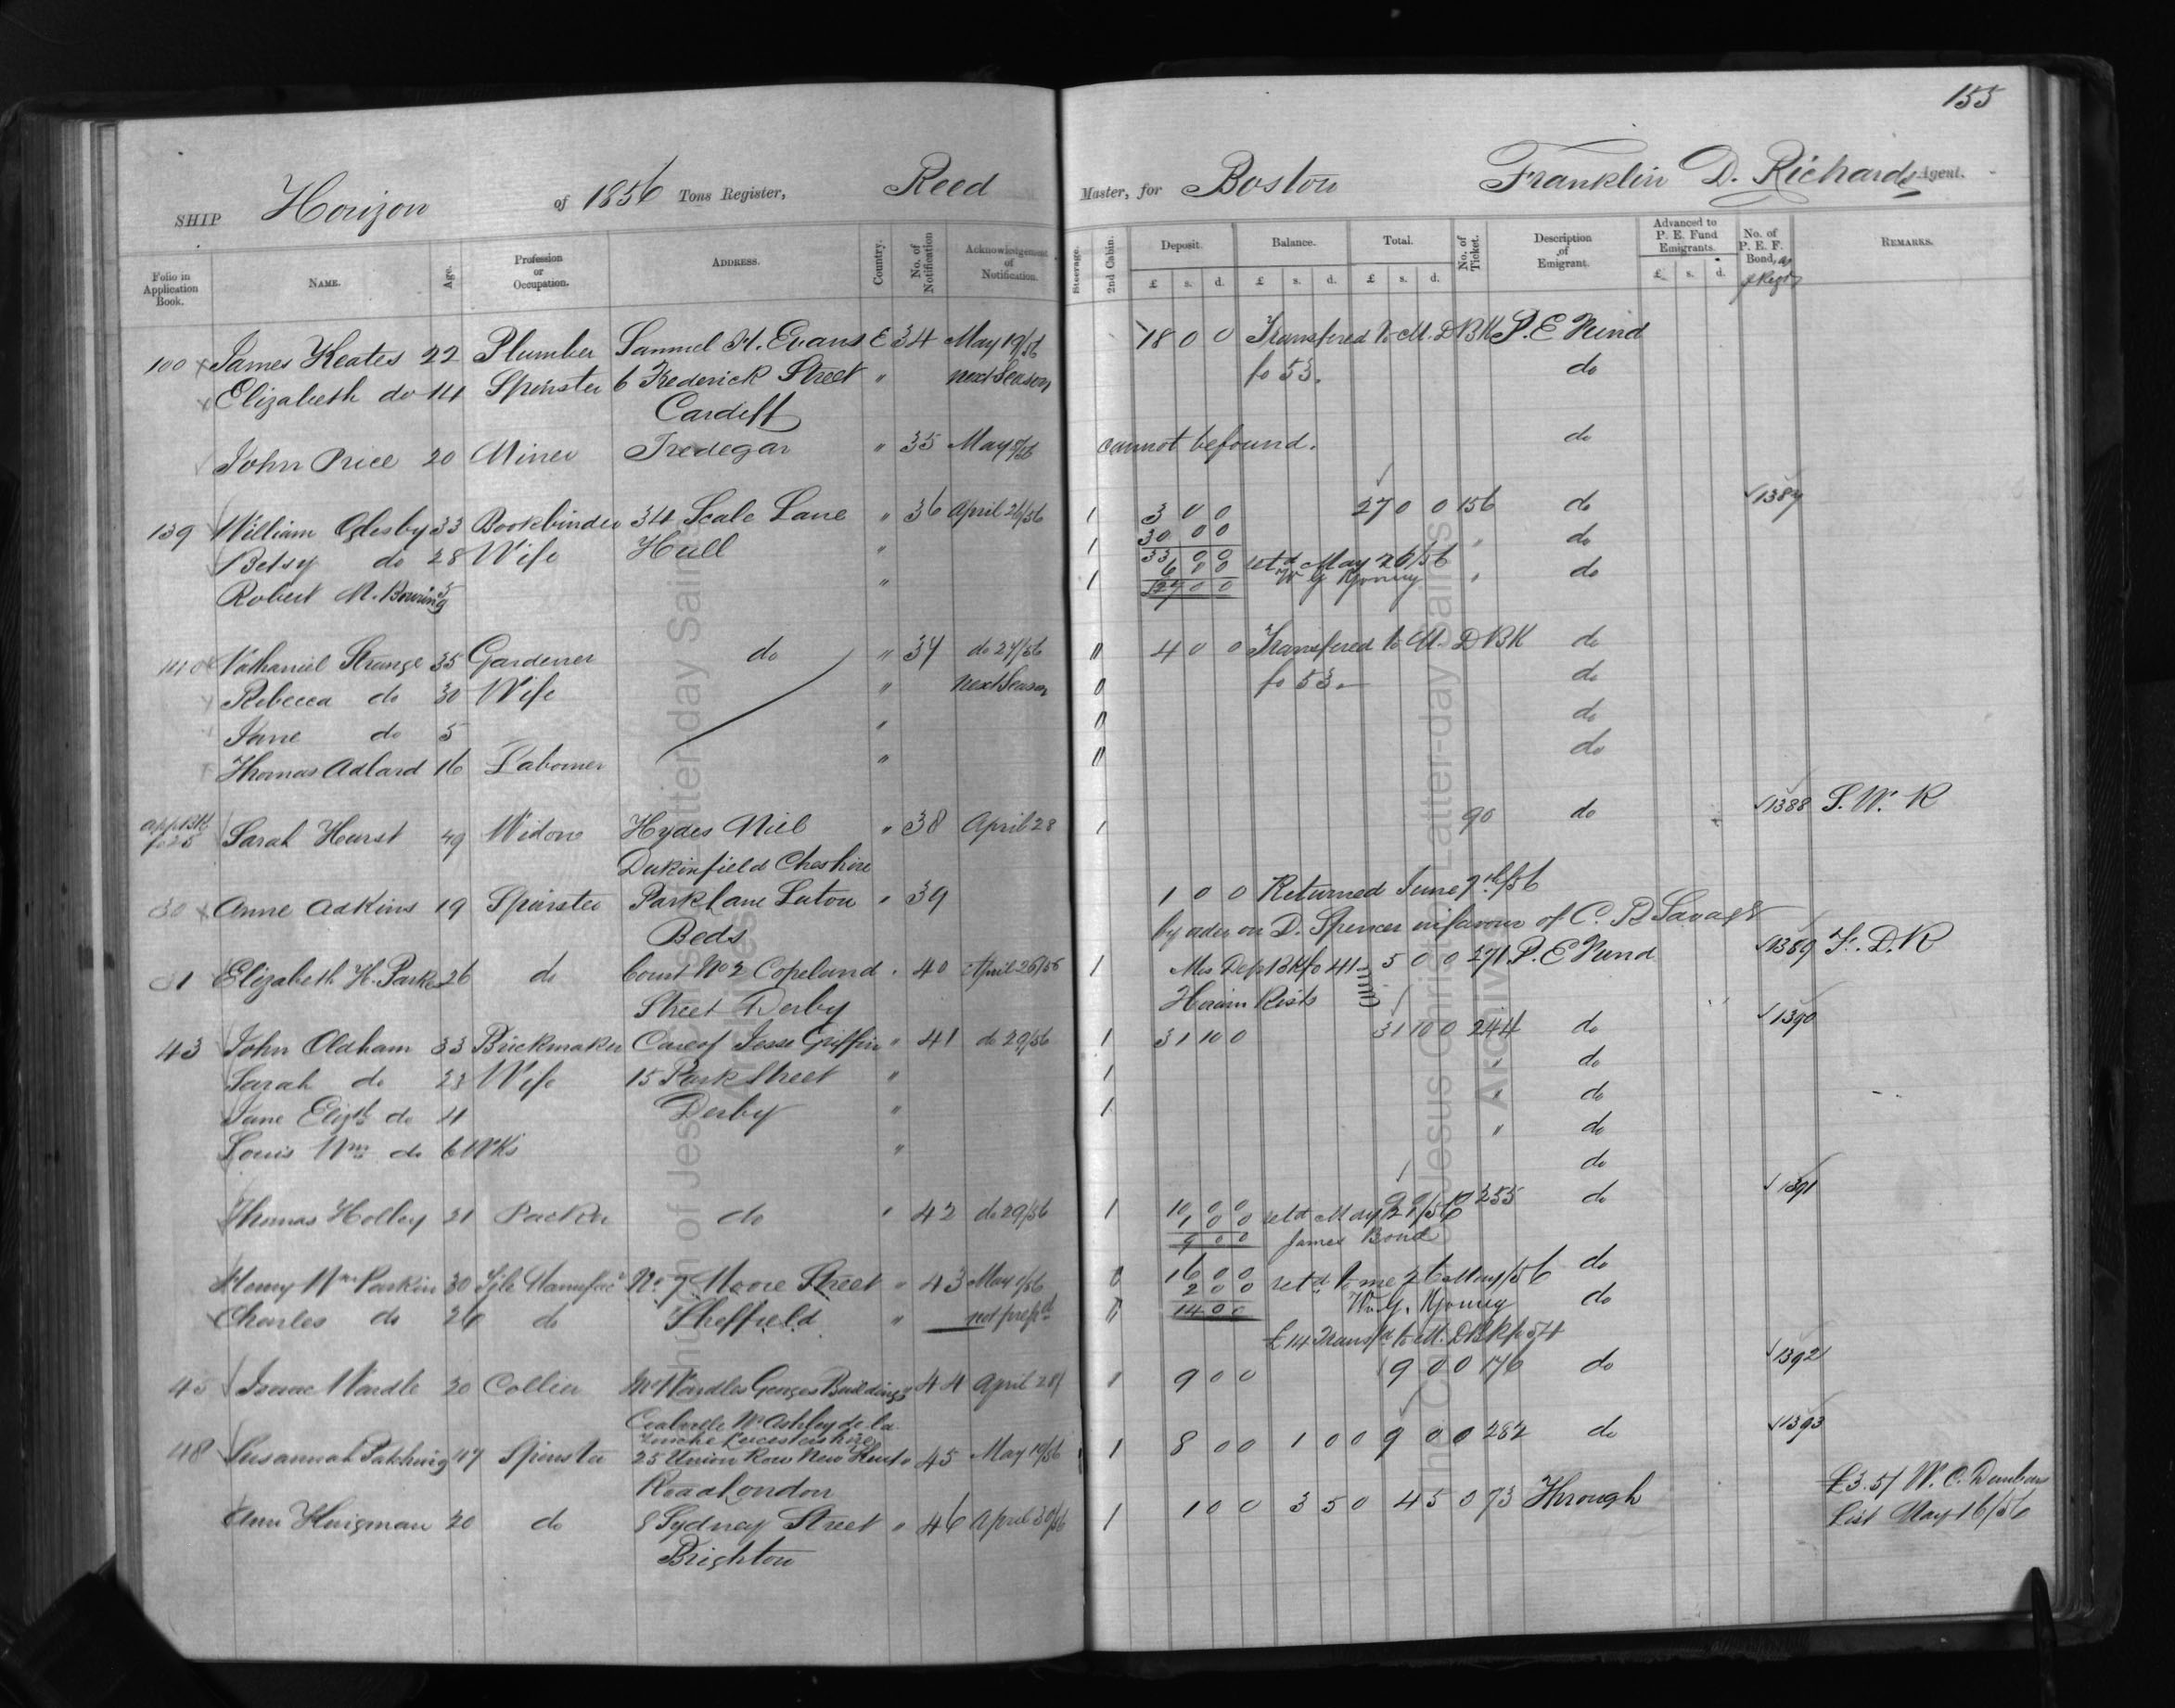 155
SHIP Horizon of 1856 Tons Register, Reed Master, for Boston Franklin D. Richards Agent.
Folio in Application Book. NAME. Age. Profession or Occupation. ADDRESS. Country. No. of Notification Acknowledgement of Notification. Steerage. 2nd Cabin. Deposit. £ s. d. Balance. £ s. d. Total. £ s. d. No. of Ticket. Description of Emigrant. Advanced to P. E. Fund Emigrants. £ s. d. No. of P. E. F. Bond, REMARKS.
100 James Keates 22 Plumber Samuel H. Evans E 34 May 19/56 18 0 0 Transfered to M. D BK P. E Fund
Elizabeth do 14 Spinster 6 Frederick Street " next Season fo 53. do
Cardiff
John Price 20 Miner Tredegar " 35 May /56 cannot be found. do
139 William Oglesby 33 Bookbinder 34 Scale Lane " 36 April 26/56 1 3 0 0 27 0 0 156 do 1387
30 0 0
Betsy do 28 Wife Hull " 1 33 0 0 " do
6 0 0 retd May 26/56
Robert M. Bouring 5 " 1 27 0 0 W G Young " do
140 Nathaniel Strange 35 Gardener do " 37 do 27/56 " 4 0 0 Transfered to M. D BK do
Rebecca do 30 Wife " next Season 0 fo 53. do
Jane do 5 " 0 do
Thomas Adlard 16 Labourer " " do
App BK fo 25 Sarah Hurst 49 Widow Hydes Mill " 38 April 28 1 90 do 1388 S. W. R
Dukinfield Cheshire
30 Anne Adkins 19 Spinster Park Lane Luton " 39 1 0 0 Returned June 7th/56
Beds by order on D. Spencer in favour of C. R Savage
31 Elizabeth H. Parker 26 do Court No 2 Copeland " 40 April 26/56 1 Mis Dep BK fo 41 5 0 0 271 P. E Fund 1389 F. D. R
Street Derby
43 John Oldham 33 Brickmaker Care of Jesse Griffin " 41 do 29/56 1 31 10 0 31 10 0 244 do 1390
Sarah do 23 Wife 15 Park Street " 1 " do
Jane Elizth do 4 Derby " 1 " do
Louis Wm do 6 Wks " " do
do
Thomas Holley 21 Packer do " 42 do 29/56 1 10 0 0 255 do 1391
1 0 0 retd May 27/56
9 0 0 James Bond
Henry Wm Parkin 30 No 7 Moore Street " 43 May 1/56 0 16 0 0 do
2 0 0 retd to me 26 May/56
Charles do 26 do Sheffield " not prepd " 14 0 0 Wm G. Young do
£14 Transfd to M. D BK fo 54
45 Isaac Wardle 20 Collier Mr Wardles Georges Buildings " 44 April 28/ 1 9 0 0 9 0 0 176 do 1392
Coalville Nr Ashby de la
Zouche Leicestershire
48 Susannah Patching 47 Spinster 25 Union Row New Kent " 45 May 10/56 1 8 0 0 1 0 0 9 0 0 282 do 1393
Road London
Ann Huigman 20 do 8 Sydney Street " 46 April 30/56 1 1 0 0 3 5 0 4 5 0 73 Through £3.5/ W. C. Dunbars
Brighton List May 16/56